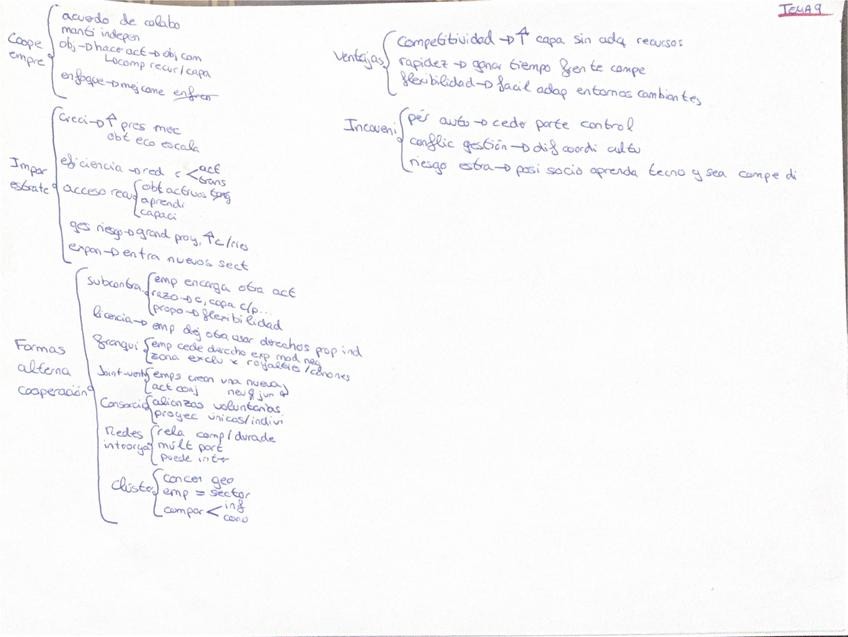 TEMA 9
Coope empre
acuerdo de colabo
manti indepen
obj → hacer act → obj com
↳ comp recur/capa
enfoque → mejcome enfren
Impor estrate
creci → ↑ pres mec
obt eco escala
eficiencia → red c < act
trans
acceso recu
obt activos tang
aprendi
capaci
ges riesgo → grand proy, ↑ c/ries
expan → entra nuevos sect
Formas alterna cooperación
subcontra
emp encarga otra act
razo → c, capa c/p...
propo → flexibilidad
licencia → emp dej otra usar derechos prop ind
franqui
emp cede derecho exp mod neg
zona exclu x royalties/cánones
Joint-vent
emps crean una nueva
act conj neu & jur
Consorcio
alianzas voluntarias
proyec únicos/indivi
Redes interorga
rela comp/durade
múlt part
puede inter
Clúster
concen geo
emp = sector
compar < inf
cono
Ventajas
competitividad → ↑ capa sin adq recursos
rapidez → ganar tiempo frente compe
flexibilidad → facil adap entornos cambiantes
Inconveni
pér auto → ceder parte control
conflic gestión → dif coordi cultu
riesgo estra → posi socio aprenda tecno y sea compe di